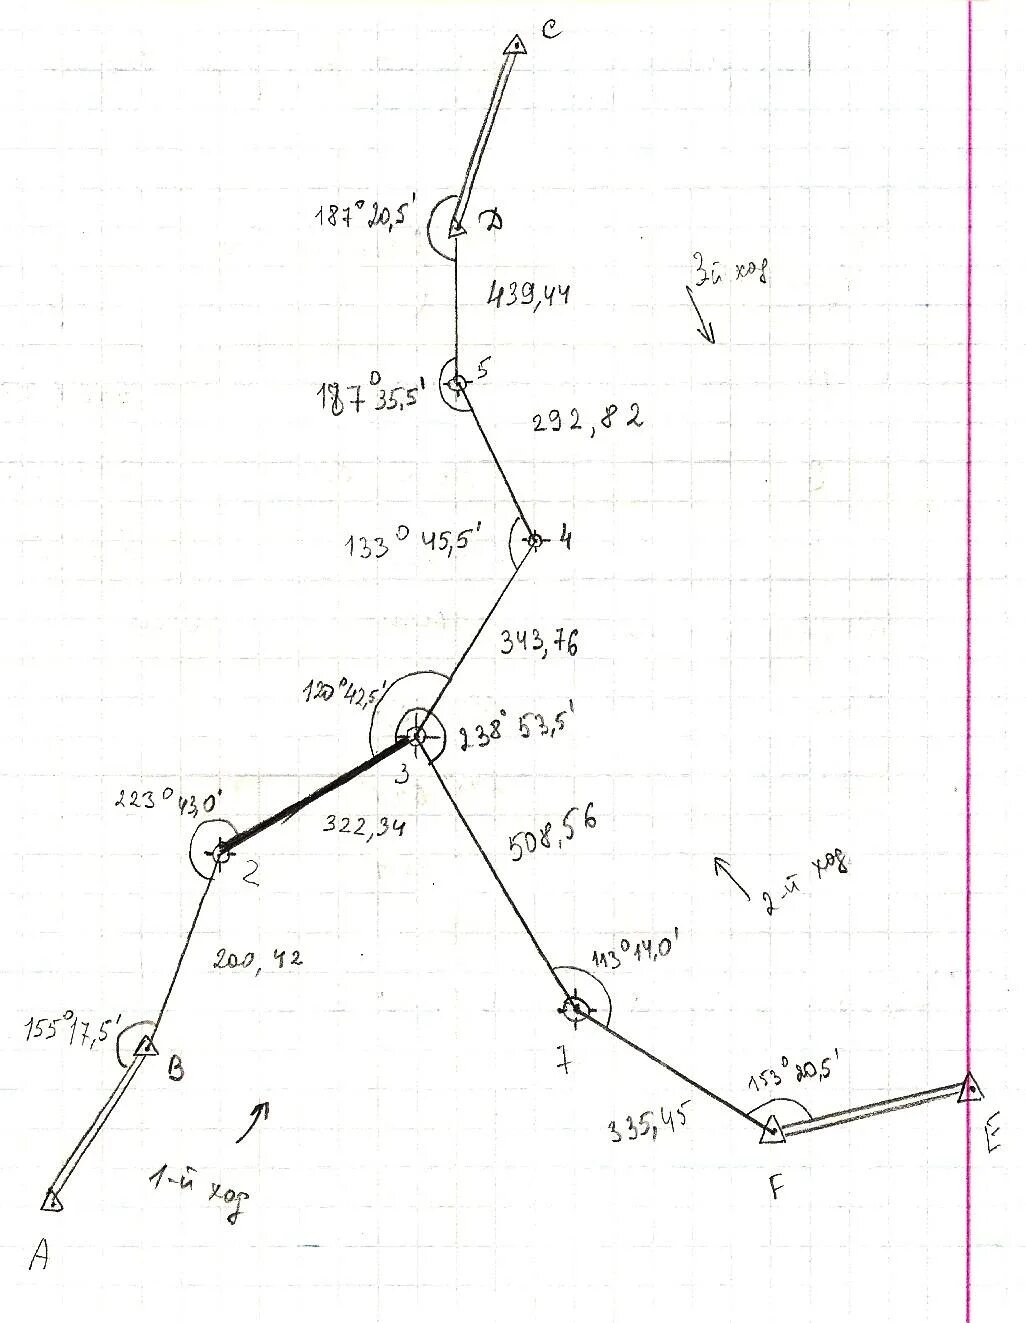 C
187°20,5'
D
439,44
3й ход
5
187°35,5'
292,82
133° 45,5'
4
343,76
120°42,5'
238° 53,5'
3
223°43,0'
322,34
508,56
2
2-й ход
200,42
113°14,0'
155°17,5'
7
B
153°20,5'
335,45
E
1-й ход
F
A